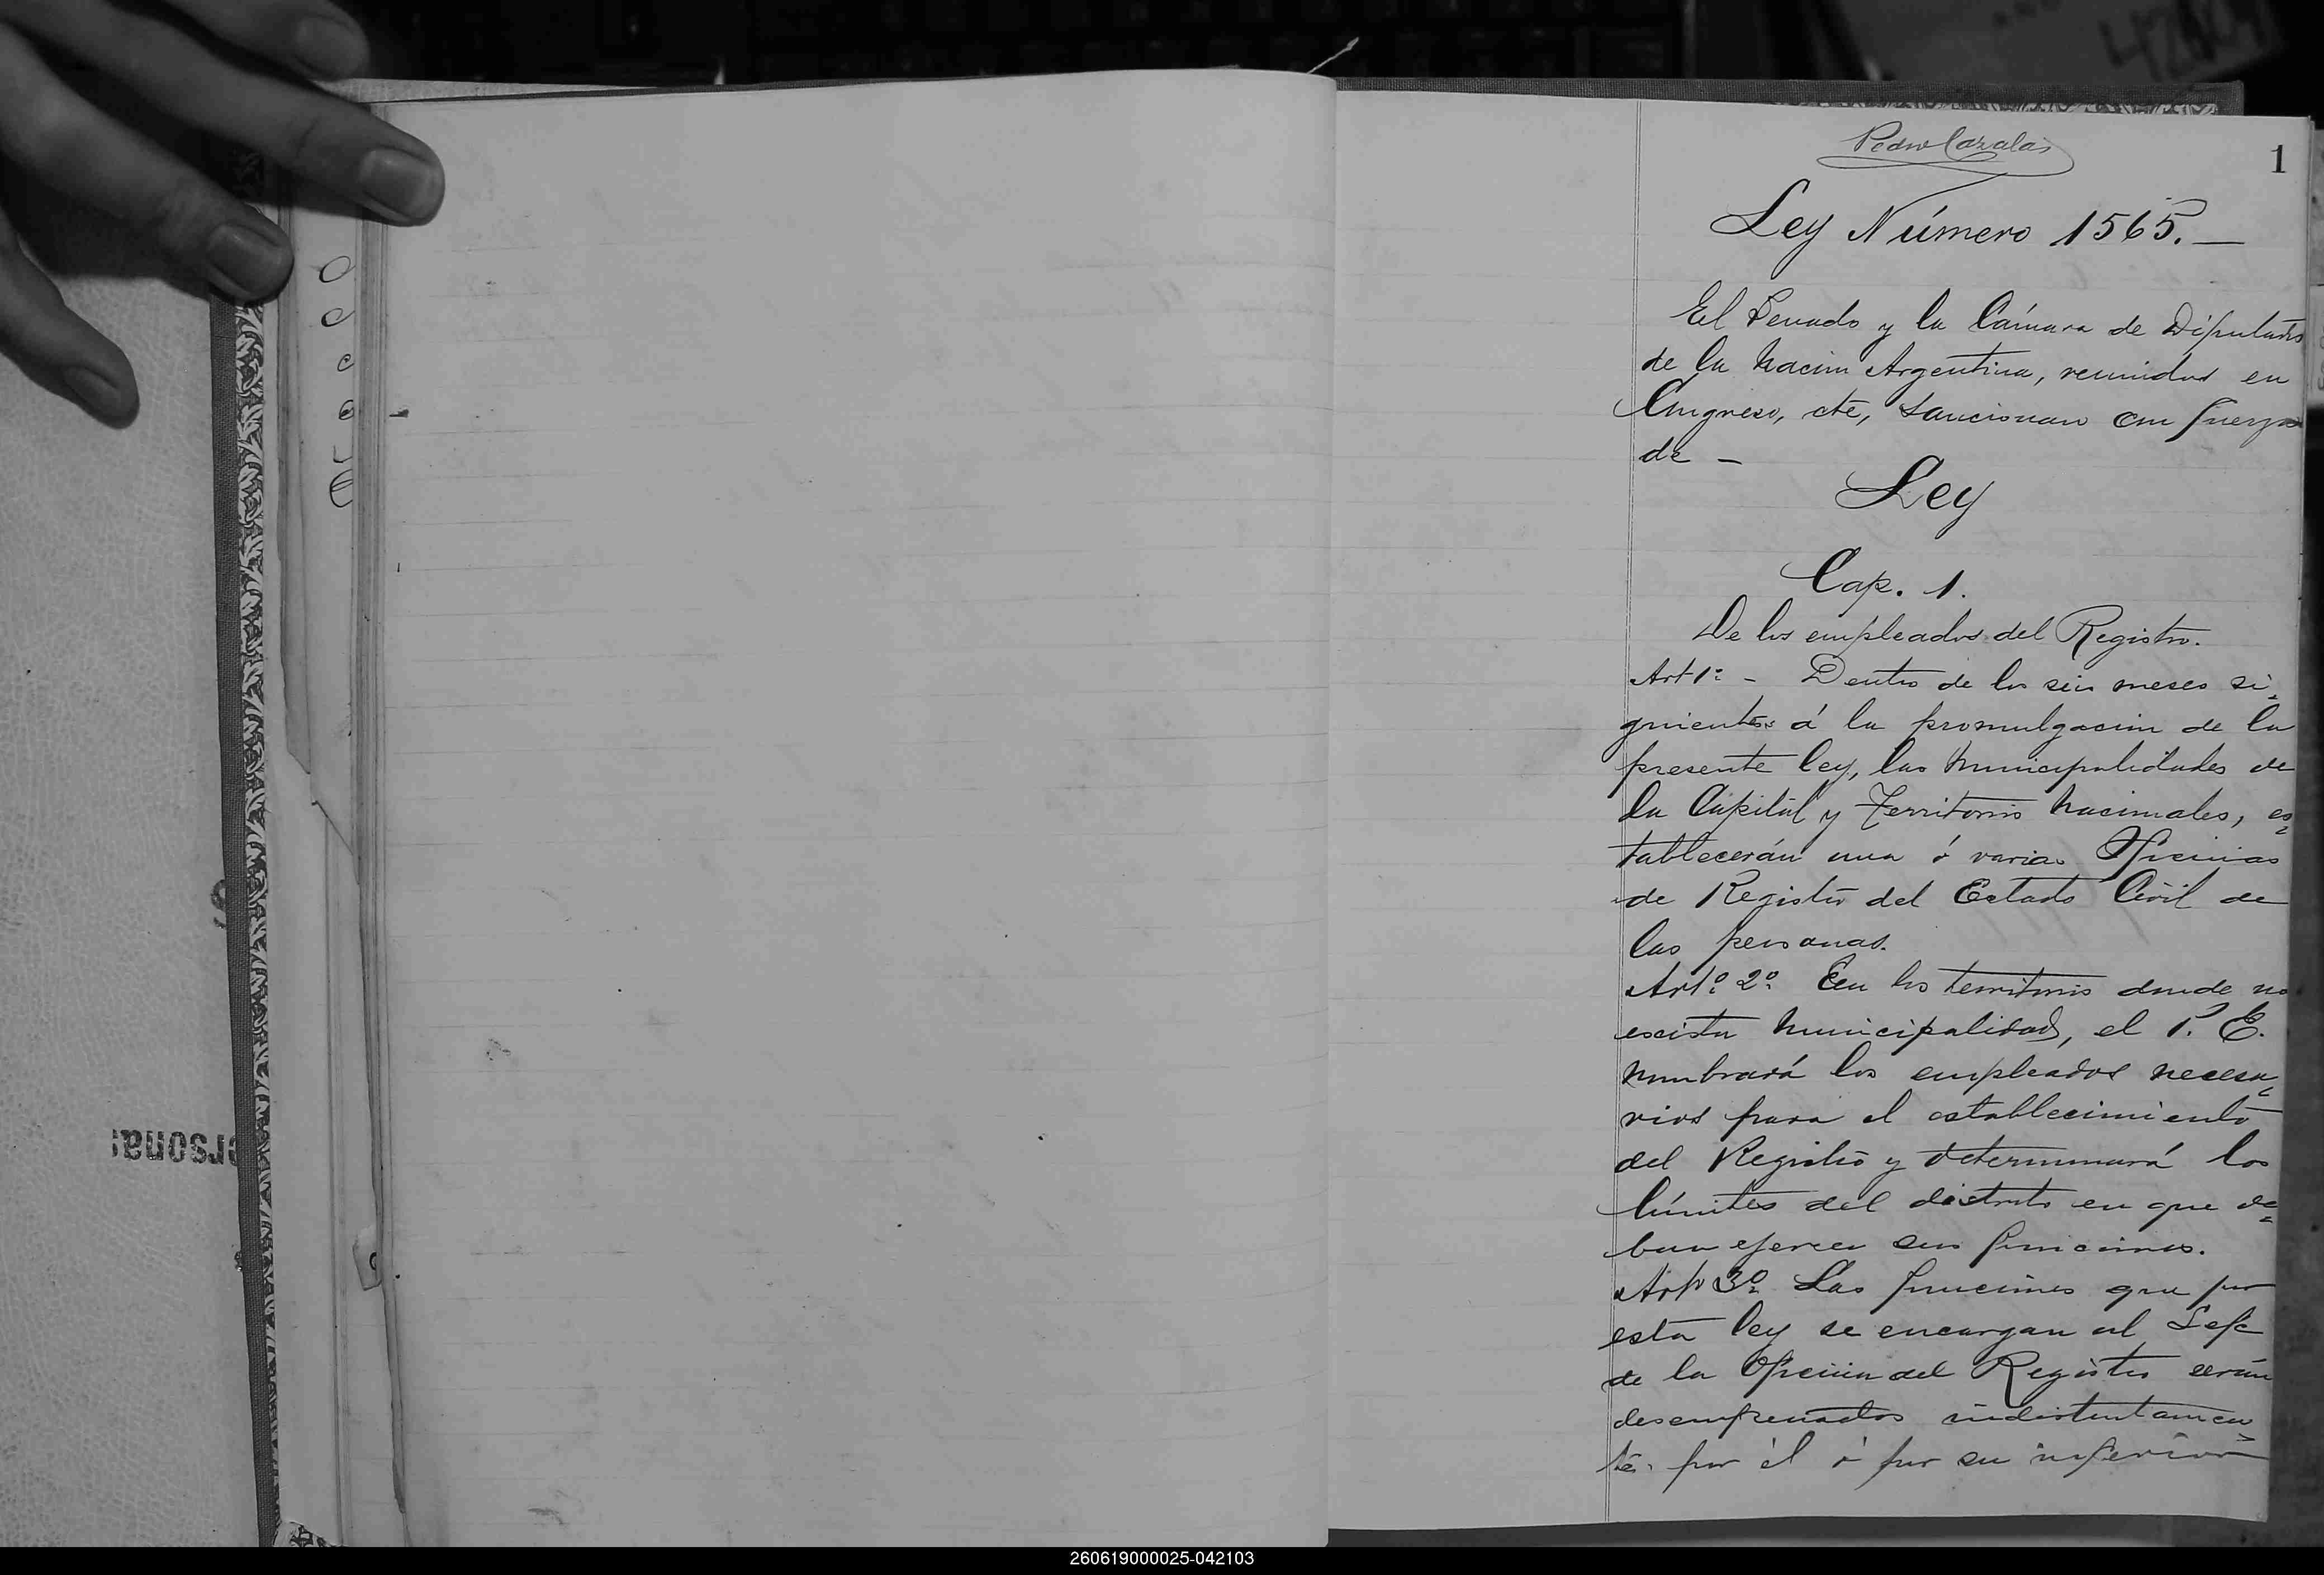 Pedro Cazalas
1
Ley Número 1565.—
El Senado y la Cámara de Diputados
de la Nacion Argentina, reunidos en
Congreso, ete, sancionan con fuerza
de —
Ley
Cap. 1.
De los empleados del Registro.
Art 1º - Dentro de los seis meses si=
guientes á la promulgacion de la
presente ley, las Municipalidades de
la Capital y Territorios Nacionales, es=
tablecerán una ó varias Oficinas
de Registro del Estado Civil de
las personas.
Artº 2º En los territorios donde no
escista Municipalidad, el P. E.
nombrará los empleados necesa=
rios para el establecimiento
del Registro y determinará los
límites del distrito en que de=
ban ejercer sus funciones.
Artº 3º Las funciones que por
esta ley se encargan al Jefe
de la Oficina del Registro serán
desempeñados indistintamen=
te por él ó por su inferior
ersonal
260619000025-042103